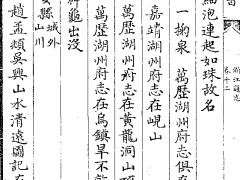 浙江通志
卷十二
細泡連起如珠故名
一掬泉 萬歷湖州府志俱在
嘉靖湖州府志在峴山
萬歷湖州府志在黃龍洞山
萬歷湖州府志在烏鎮旱不
龜出沒
縣城外
山川
趙孟頫吳興山水清遠圖記